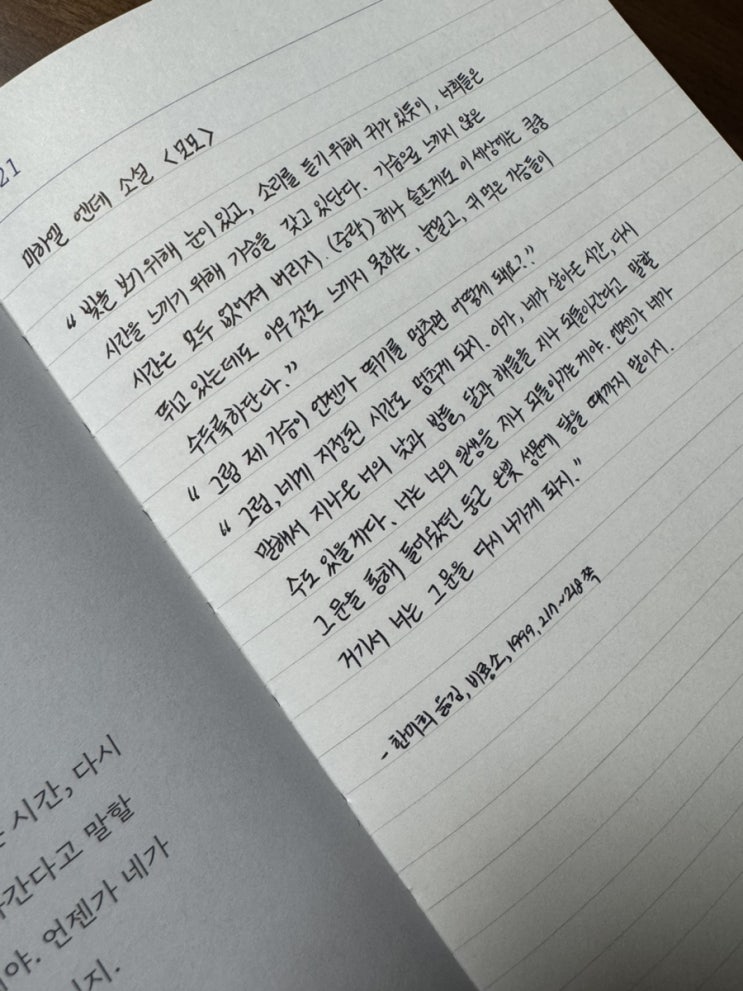 21
미하엘 엔데 소설 <모모>
“ 빛을 보기 위해 눈이 있고, 소리를 듣기 위해 귀가 있듯이, 너희들은
시간을 느끼기 위해 가슴을 갖고 있단다. 가슴으로 느끼지 않은
시간은 모두 없어져 버리지. (중략) 허나 슬프게도 이 세상에는 쿵쿵
뛰고 있는데도 아무것도 느끼지 못하는, 눈멀고, 귀 먹은 가슴들이
수두룩하단다.”
“ 그럼 제 가슴이 언젠가 뛰기를 멈추면 어떻게 돼요?”
“ 그럼, 네게 지정된 시간도 멈추게 되지. 아가, 네가 살아온 시간, 다시
말해서 지나온 너의 낮과 밤들, 달과 해들을 지나 되돌아간다고 말할
수도 있을 게다. 너는 너의 일생을 지나 되돌아가는 게야. 언젠가 네가
그 문을 통해 들어왔던 둥근 은빛 성문에 닿을 때까지 말이지.
거기서 너는 그 문을 다시 나가게 되지.”
- 한미희 옮김, 비룡소, 1999, 217~218 쪽
시간, 다시
간다고 말할
야. 언젠가 네가
지.